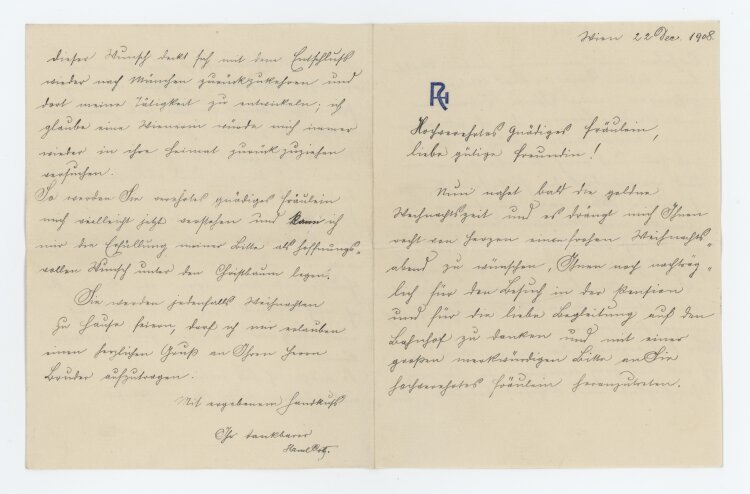 Wien 22 Dec. 1908.
Hochverehrtes Gnädiges Fräulein,
liebe gütige Freundin!
Nun nahet bald die goldne
Weihnachtszeit und es drängt mich Ihnen
recht von Herzen einen frohen Weihnachts-
abend zu wünschen, Ihnen noch nachträg-
lich für den Besuch in der Pension
und für die liebe Begleitung auf den
Bahnhof zu danken und mit einer
großen merkwürdigen Bitte an Sie
hochverehrtes Fräulein heranzutreten.
dieser Wunsch deckt sich mit dem Entschluß
wieder nach München zurückzukehren und
dort meine Tätigkeit zu entwickeln; ich
glaube eine Wienerin würde mich immer
wieder in ihre Heimat zurück zuziehen
versuchen.
So werden Sie verehrtes gnädiges Fräulein
mich vielleicht jetzt verstehen und kann ich
nur die Erfüllung meiner Bitte als hoffnungs-
vollen Wunsch unter den Christbaum legen.
Sie werden jedenfalls Weihnachten
zu Hause feiern, darf ich mir erlauben
einen herzlichen Gruß an Ihren Herrn
Bruder aufzutragen.
Mit ergebenem Handkuß
Ihr dankbarer